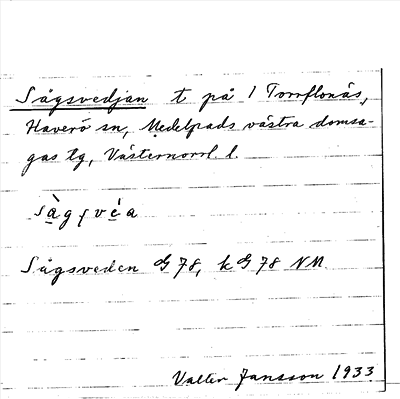 Sågsvedjan t på 1 Torrflonäs,
Haverö sn, Medelpads västra domsa-
gas tg, Västernorrl. l.
Sågsveden G 78, k G 78 NM.
Valter Jansson 1933